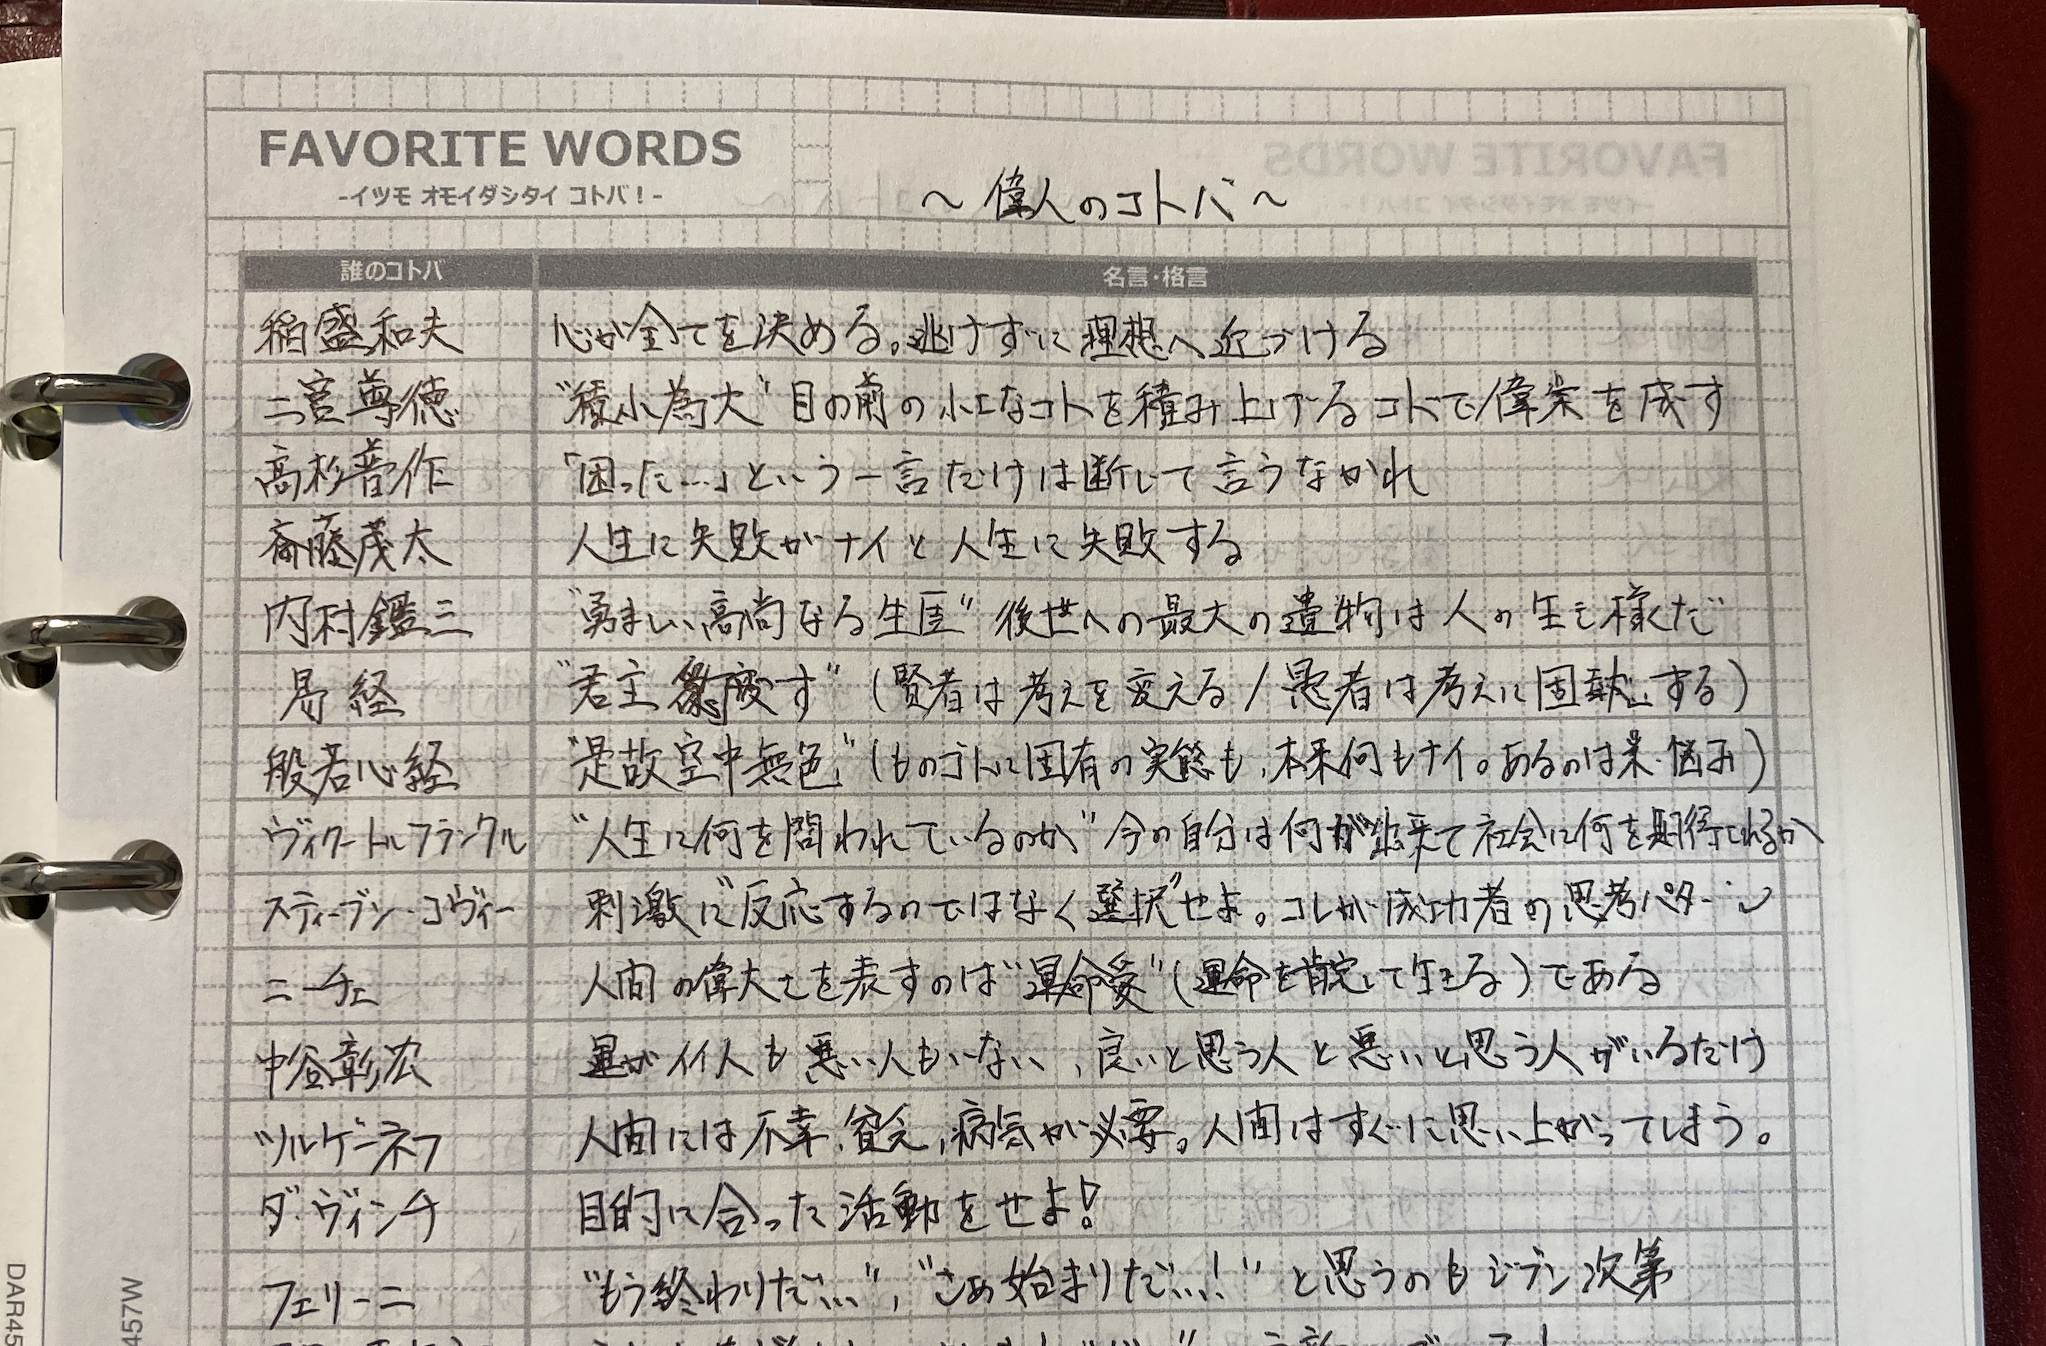 FAVORITE WORDS
-イツモ オモイダシタイ コトバ!-
～偉人のコトバ～
誰のコトバ 名言・格言
稲盛和夫 心が全てを決める。逃げずに理想へ近づける
二宮尊徳 "積小為大" 目の前の小さなコトを積み上げるコトで偉業を成す
高杉晋作 「困った…」という一言だけは断じて言うなかれ
斎藤茂太 人生に失敗がナイと人生に失敗する
内村鑑三 "勇ましい高尚なる生涯" 後世への最大の遺物は人の生き様だ
易経 "君主 す" (賢者は考えを変える/愚者は考えに固執する)
般若心経 "是故空中無色" (ものゴトに固有の実態も、本来何もナイ。あるのは 悩み)
ヴィクートルフランクル "人生に何を問われているのか" 今の自分は何が出来て社会に何を期待されるか
スティーブン・コヴィー 刺激に"反応するのではなく選択"せよ。コレが成功者の思考パターン
ニーチェ 人間の偉大さを表すのは"運命愛"(運命を肯定して生きる)である
中谷彰宏 運がイイ人も悪い人もいない、良いと思う人と悪いと思う人がいるだけ
ツルゲーネフ 人間には不幸、貧乏、病気が必要。人間はすぐに思い上がってしまう。
ダ・ヴィンチ 目的に合った活動をせよ!
フェリーニ "もう終わりだ…"、"さあ始まりだ…!" と思うのもジブン次第
DAR45
457W